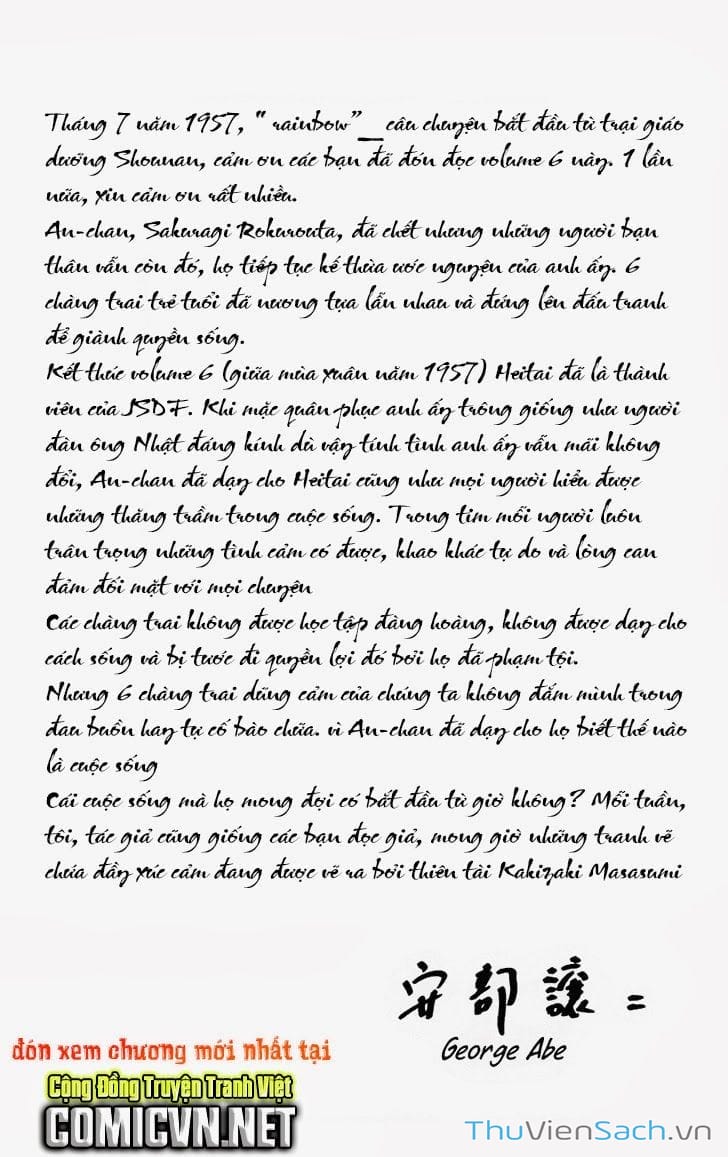 Tháng 7 năm 1957, " rainbow"_ câu chuyện bắt đầu từ trại giáo
dưỡng Shounan, cảm ơn các bạn đã đón đọc volume 6 này. 1 lần
nữa, xin cảm ơn rất nhiều.
An-chan, Sakuragi Rokurouta, đã chết nhưng những người bạn
thân vẫn còn đó, họ tiếp tục kế thừa ước nguyện của anh ấy. 6
chàng trai trẻ tuổi đã nương tựa lẫn nhau và đứng lên đấu tranh
để giành quyền sống.
Kết thúc volume 6 (giữa mùa xuân năm 1957) Heitai đã là thành
viên của JSDF. Khi mặc quân phục anh ấy trông giống như người
đàn ông Nhật đáng kính dù vậy tính tình anh ấy vẫn mãi không
đổi, An-chan đã dạy cho Heitai cũng như mọi người hiểu được
những thăng trầm trong cuộc sống. Trong tim mỗi người luôn
trân trọng những tình cảm có được, khao khác tự do và lòng can
đảm đối mặt với mọi chuyện
Các chàng trai không được học tập đàng hoàng, không được dạy cho
cách sống và bị tước đi quyền lợi đó bởi họ đã phạm tội.
Nhưng 6 chàng trai dũng cảm của chúng ta không đắm mình trong
đau buồn hay tự cố bào chữa. vì An-chan đã dạy cho họ biết thế nào
là cuộc sống
Cái cuộc sống mà họ mong đợi có bắt đầu từ giờ không? Mỗi tuần,
tôi, tác giả cũng giống các bạn đọc giả, mong giờ những tranh vẽ
chứa đầy xúc cảm đang được vẽ ra bởi thiên tài Kakizaki Masasumi
安部譲二
George Abe
đón xem chương mới nhất tại
Cộng Đồng Truyện Tranh Việt
COMICVN.NET
ThuVienSach.vn